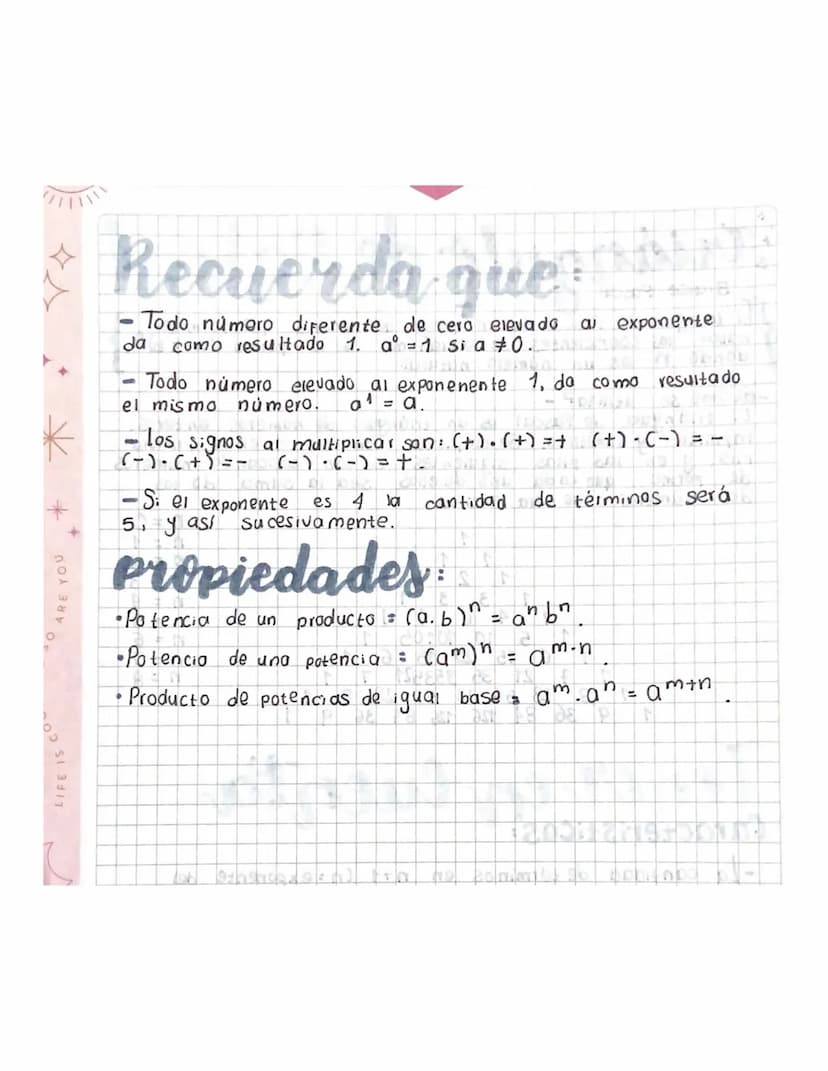 Recuerda que:
- Todo número diferente de cero elevado al exponente
da como resultado 1. a⁰ = 1 si a ≠ 0.
- Todo número elevado al exponenente 1, da como resultado
el mismo número. a¹ = a.
- Los signos al multiplicar son: (+).(+) =+ (+)·(-) = -
(-)·(+) = - (-)·(-) = +.
- Si el exponente es 4 la cantidad de términos será
5, y así sucesivamente.
propiedades:
•Potencia de un producto : (a.b)ⁿ = aⁿ bⁿ.
•Potencia de una potencia : (aᵐ)ⁿ = aᵐ·ⁿ.
•Producto de potencias de igual base : aᵐ.aⁿ = aᵐ⁺ⁿ.
ARE YOU
LIFE IS